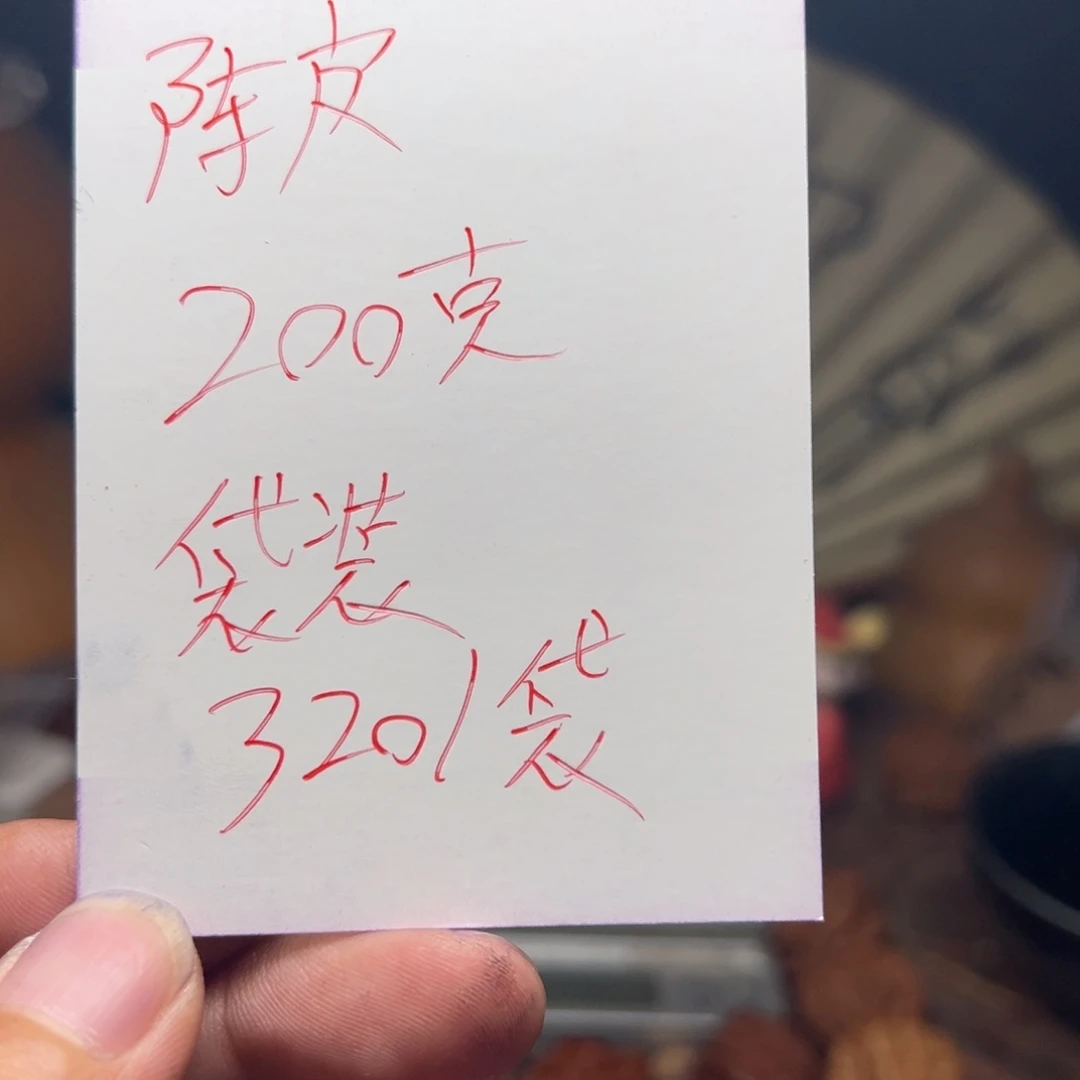 陈皮
200克
袋装
320/袋